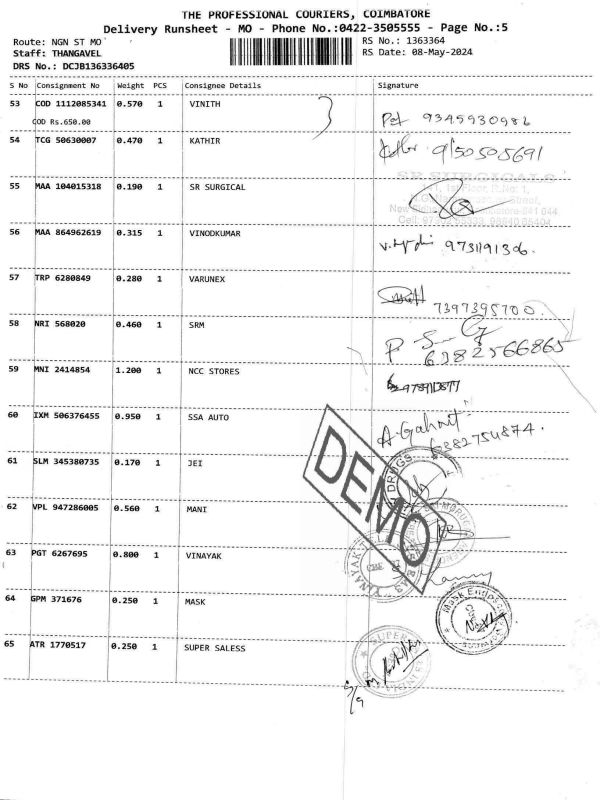 THE PROFESSIONAL COURIERS, COIMBATORE
Delivery Runsheet - MO - Phone No.:0422-3505555 - Page No.:5
Route: NGN ST MO
RS No.: 1363364
Staff: THANGAVEL
RS Date: 08-May-2024
DRS No.: DCJB136336405
S No Consignment No Weight PCS Consignee Details Signature
53 COD 1112085341 0.570 1 VINITH
COD Rs.650.00
9345930986
54 TCG 50630007 0.470 1 KATHIR
9150505691
55 MAA 104015318 0.190 1 SR SURGICAL
SR SURGICALS
56 MAA 864962619 0.315 1 VINODKUMAR
9731191306.
57 TRP 6280849 0.280 1 VARUNEX
7397395700.
58 NRI 568020 0.460 1 SRM
6382566865
59 MNI 2414854 1.200 1 NCC STORES
60 IXM 506376455 0.950 1 SSA AUTO
6882754874.
61 SLM 345380735 0.170 1 JEI
DRUGS
DEMO
62 VPL 947286005 0.560 1 MANI
63 PGT 6267695 0.800 1 VINAYAK
64 GPM 371676 0.250 1 MASK
65 ATR 1770517 0.250 1 SUPER SALESS
SUPER